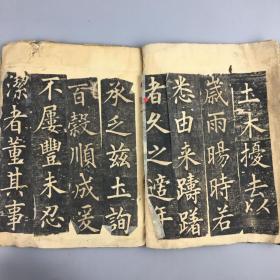 土木擾去以
歲雨暘時若
悉由来躊躇
者久之適年
承乏茲土詢
百穀順成爰
不屢豐未忍
潔者董其事